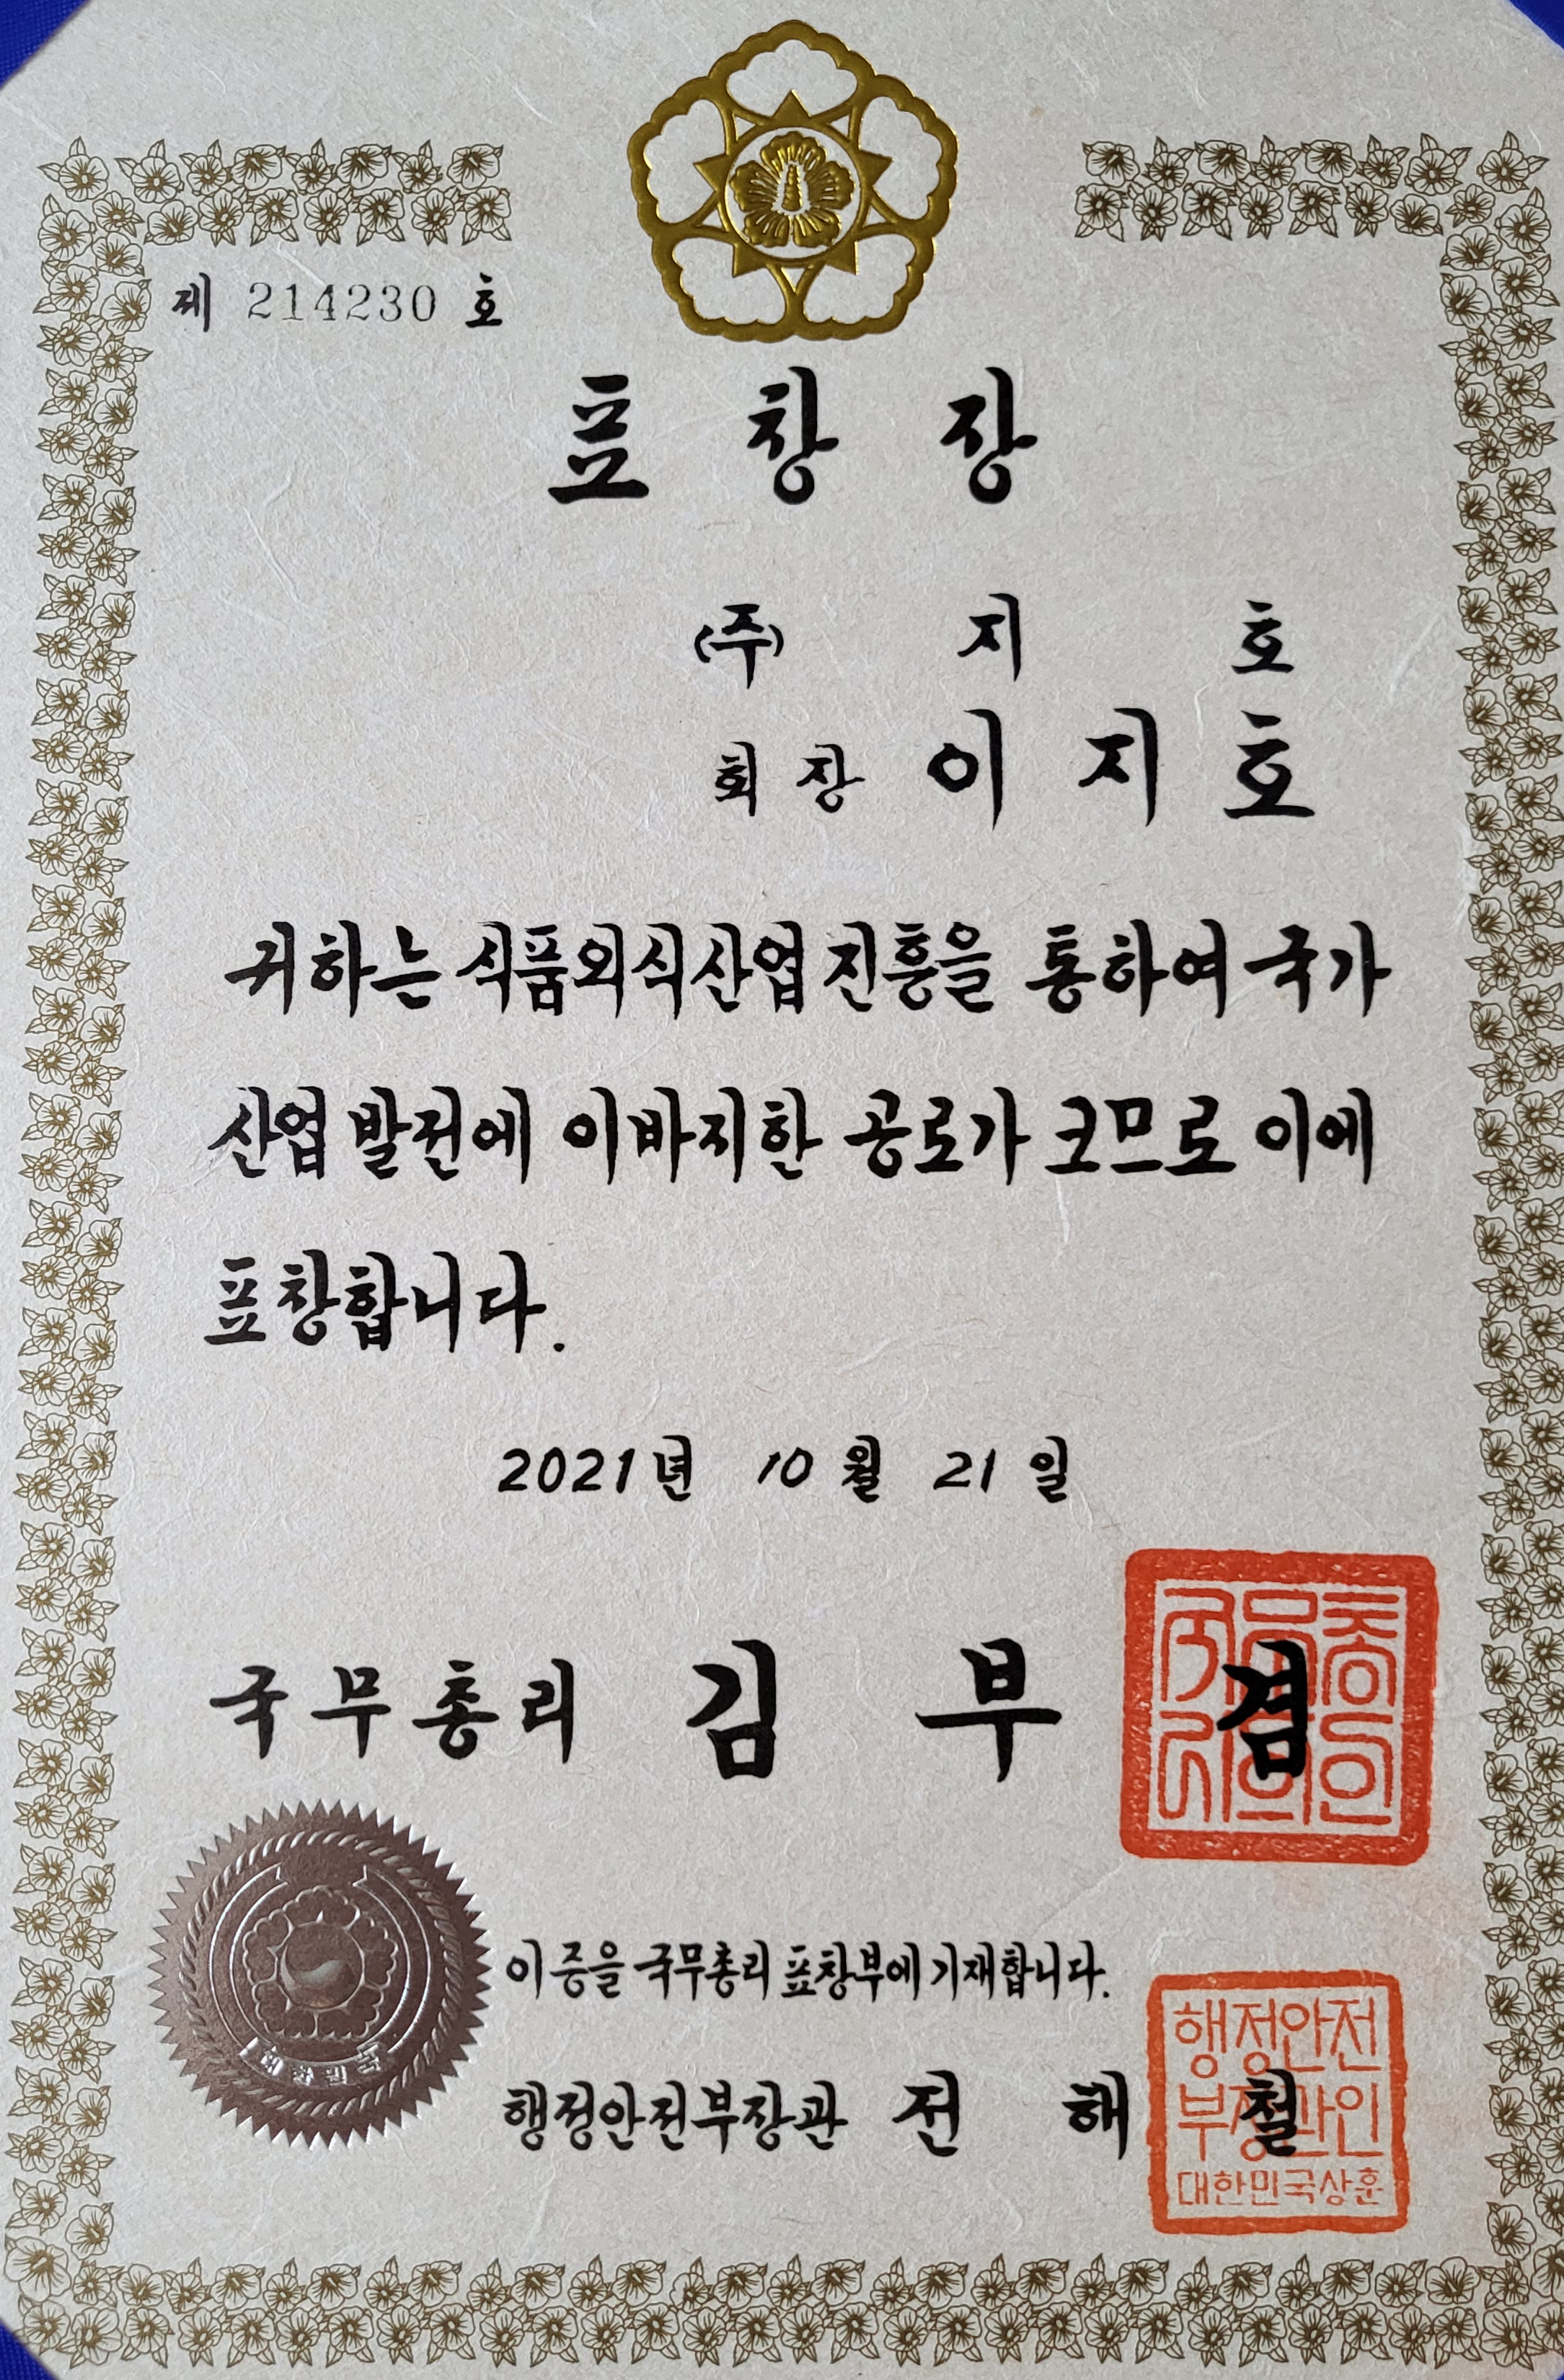 제 214230 호
표 창 장
(주) 지 호
회 장 이 지 호
귀하는 식품외식산업 진흥을 통하여 국가
산업 발전에 이바지한 공로가 크므로 이에
표창합니다.
2021년 10월 21일
국무총리 김 부 겸
국무총
리의인
대한민국
이 증을 국무총리 표창부에 기재합니다.
행정안전부장관 전 해 철
행정안전
부장관인
대한민국상훈